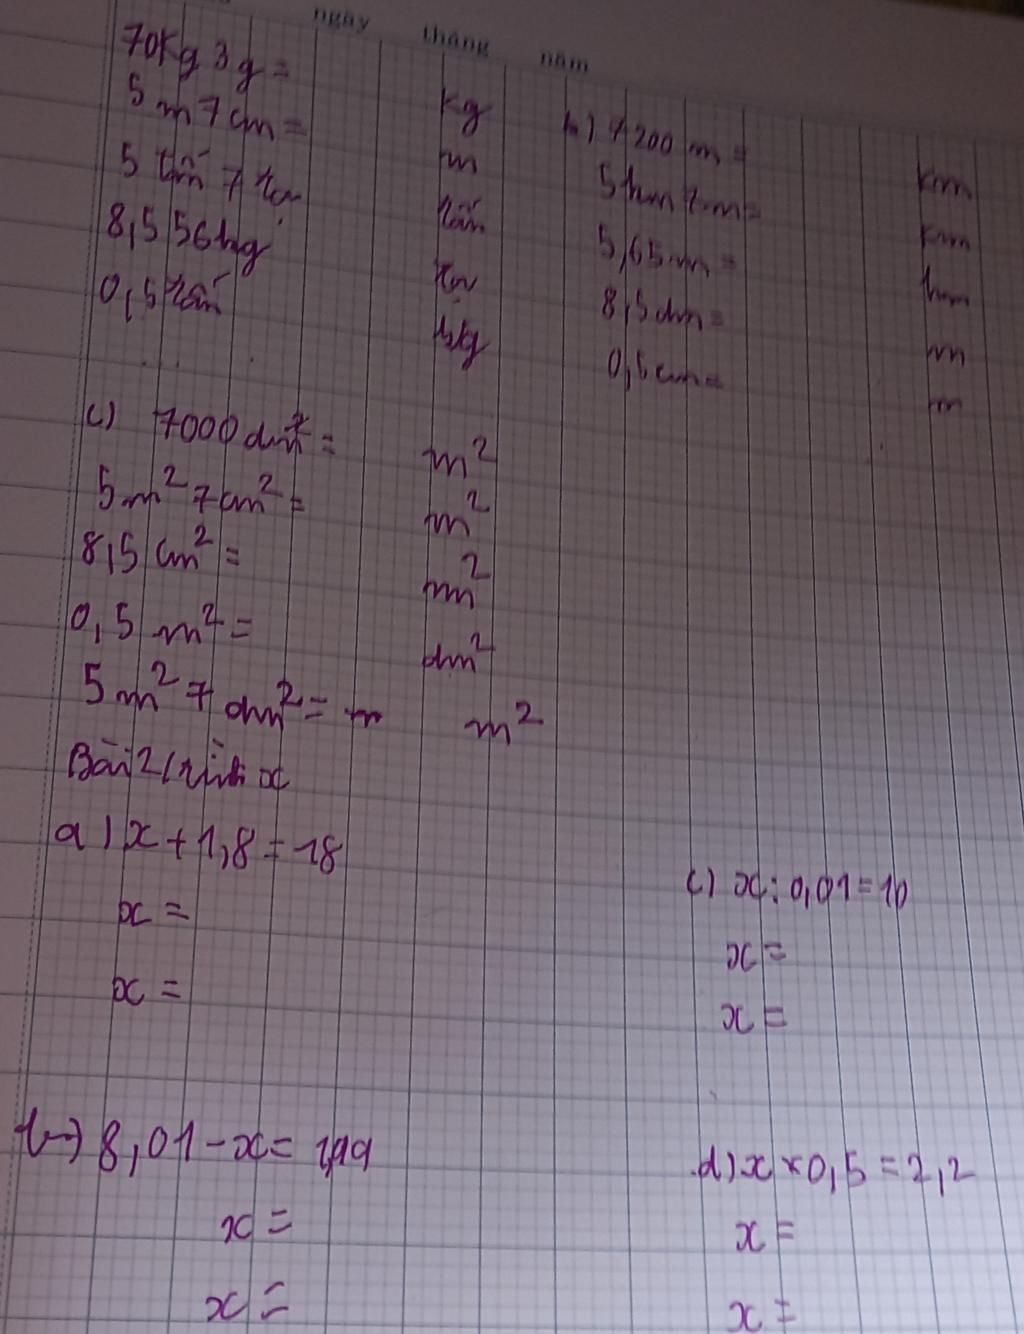 ngày tháng năm
70kg 3g = kg
5m7cm = m
5 tấn 7 tạ tấn
8,556kg tạ
0,5 tấn kg
b) 7200 m = km
5hm7m = km
5,65m = hm
8,5dm = m
0,5cm = m
c) 7000dm² = m²
5m²7cm² = m²
8,5cm² = m²
0,5 m² = dm²
5m² 7dm² = m²
Bài 2 / tìm x
a) x + 1,8 = 18
x =
x =
c) x : 0,01 = 10
x =
x =
b) 8,01 - x = 1,99
x =
x =
d) x × 0,5 = 2,2
x =
x =